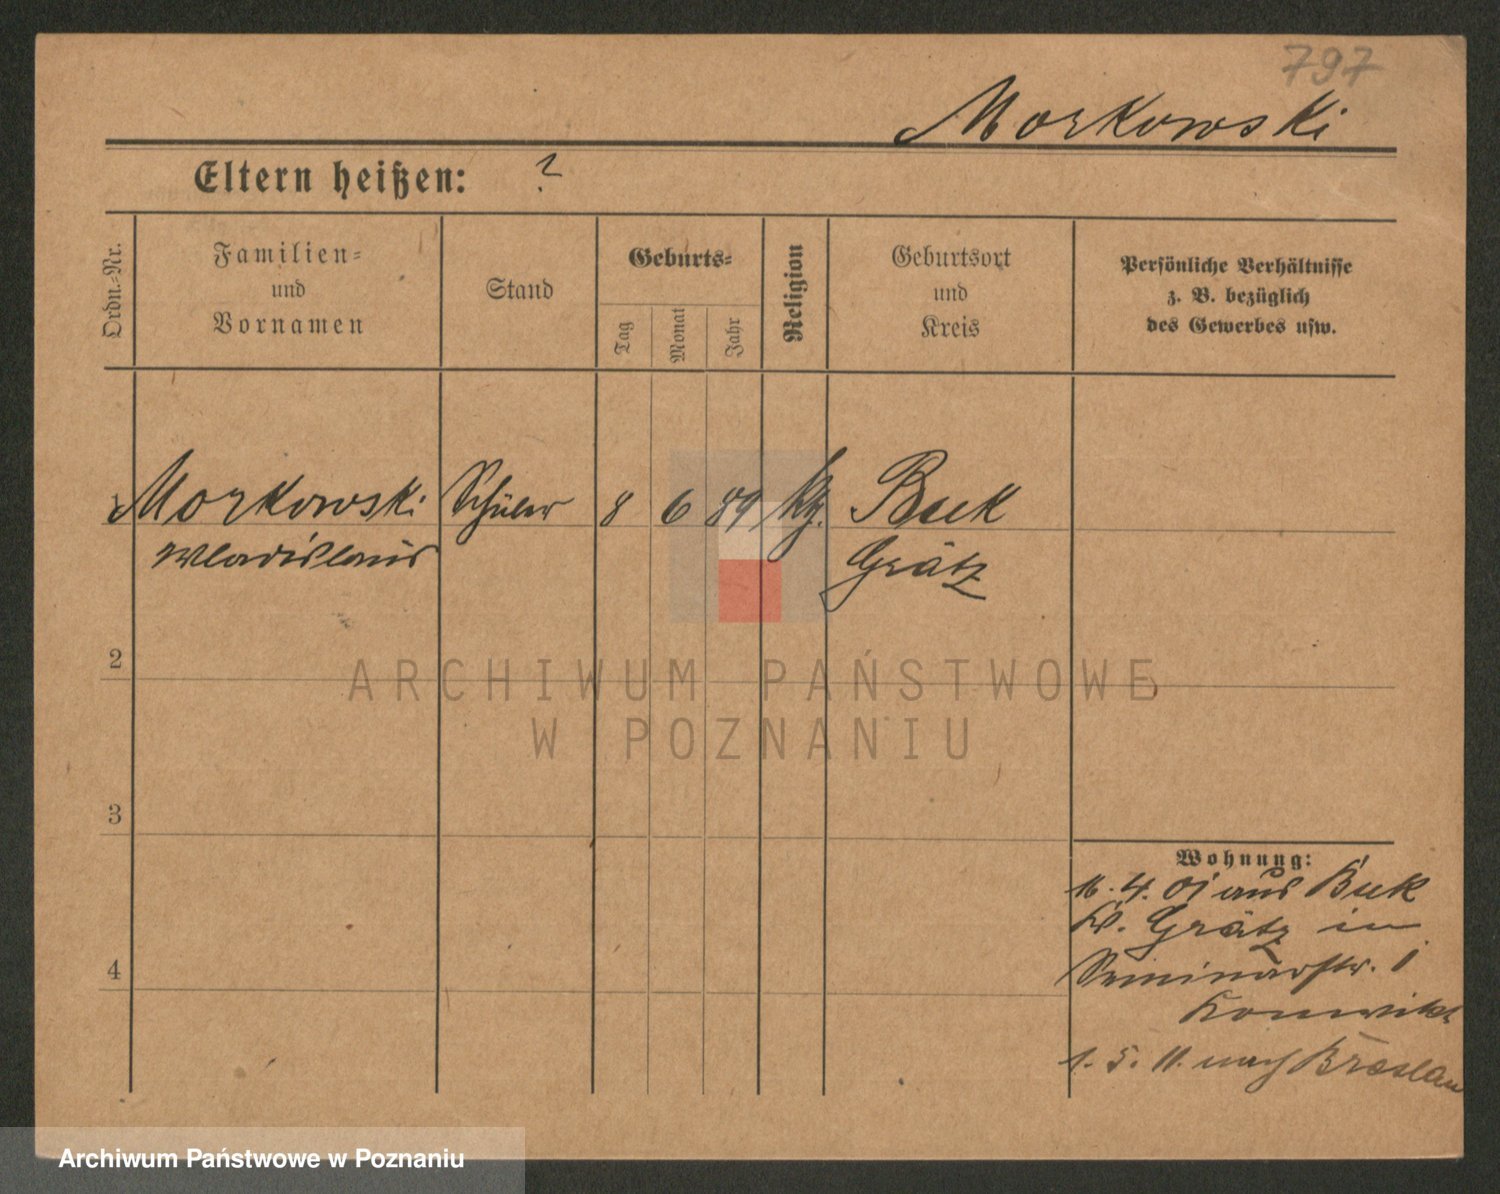 797
Morkowski
Eltern heißen: ?
Ordn.-Nr.
Familien-
und
Vornamen
Stand
Geburts-
Tag
Monat
Jahr
Religion
Geburtsort
und
Kreis
Persönliche Verhältnisse
z. B. bezüglich
des Gewerbes usw.
1 Morkowski Schüler 8 6 89 kth. Buk
Wladislaus Grätz
2
3
4
Wohnung:
16. 4. 01 aus Buk
Kr. Grätz in
Seminarstr. 1
Konvikt
1. 5. 11. nach Breslau
ARCHIWUM PAŃSTWOWE
W POZNANIU
Archiwum Państwowe w Poznaniu